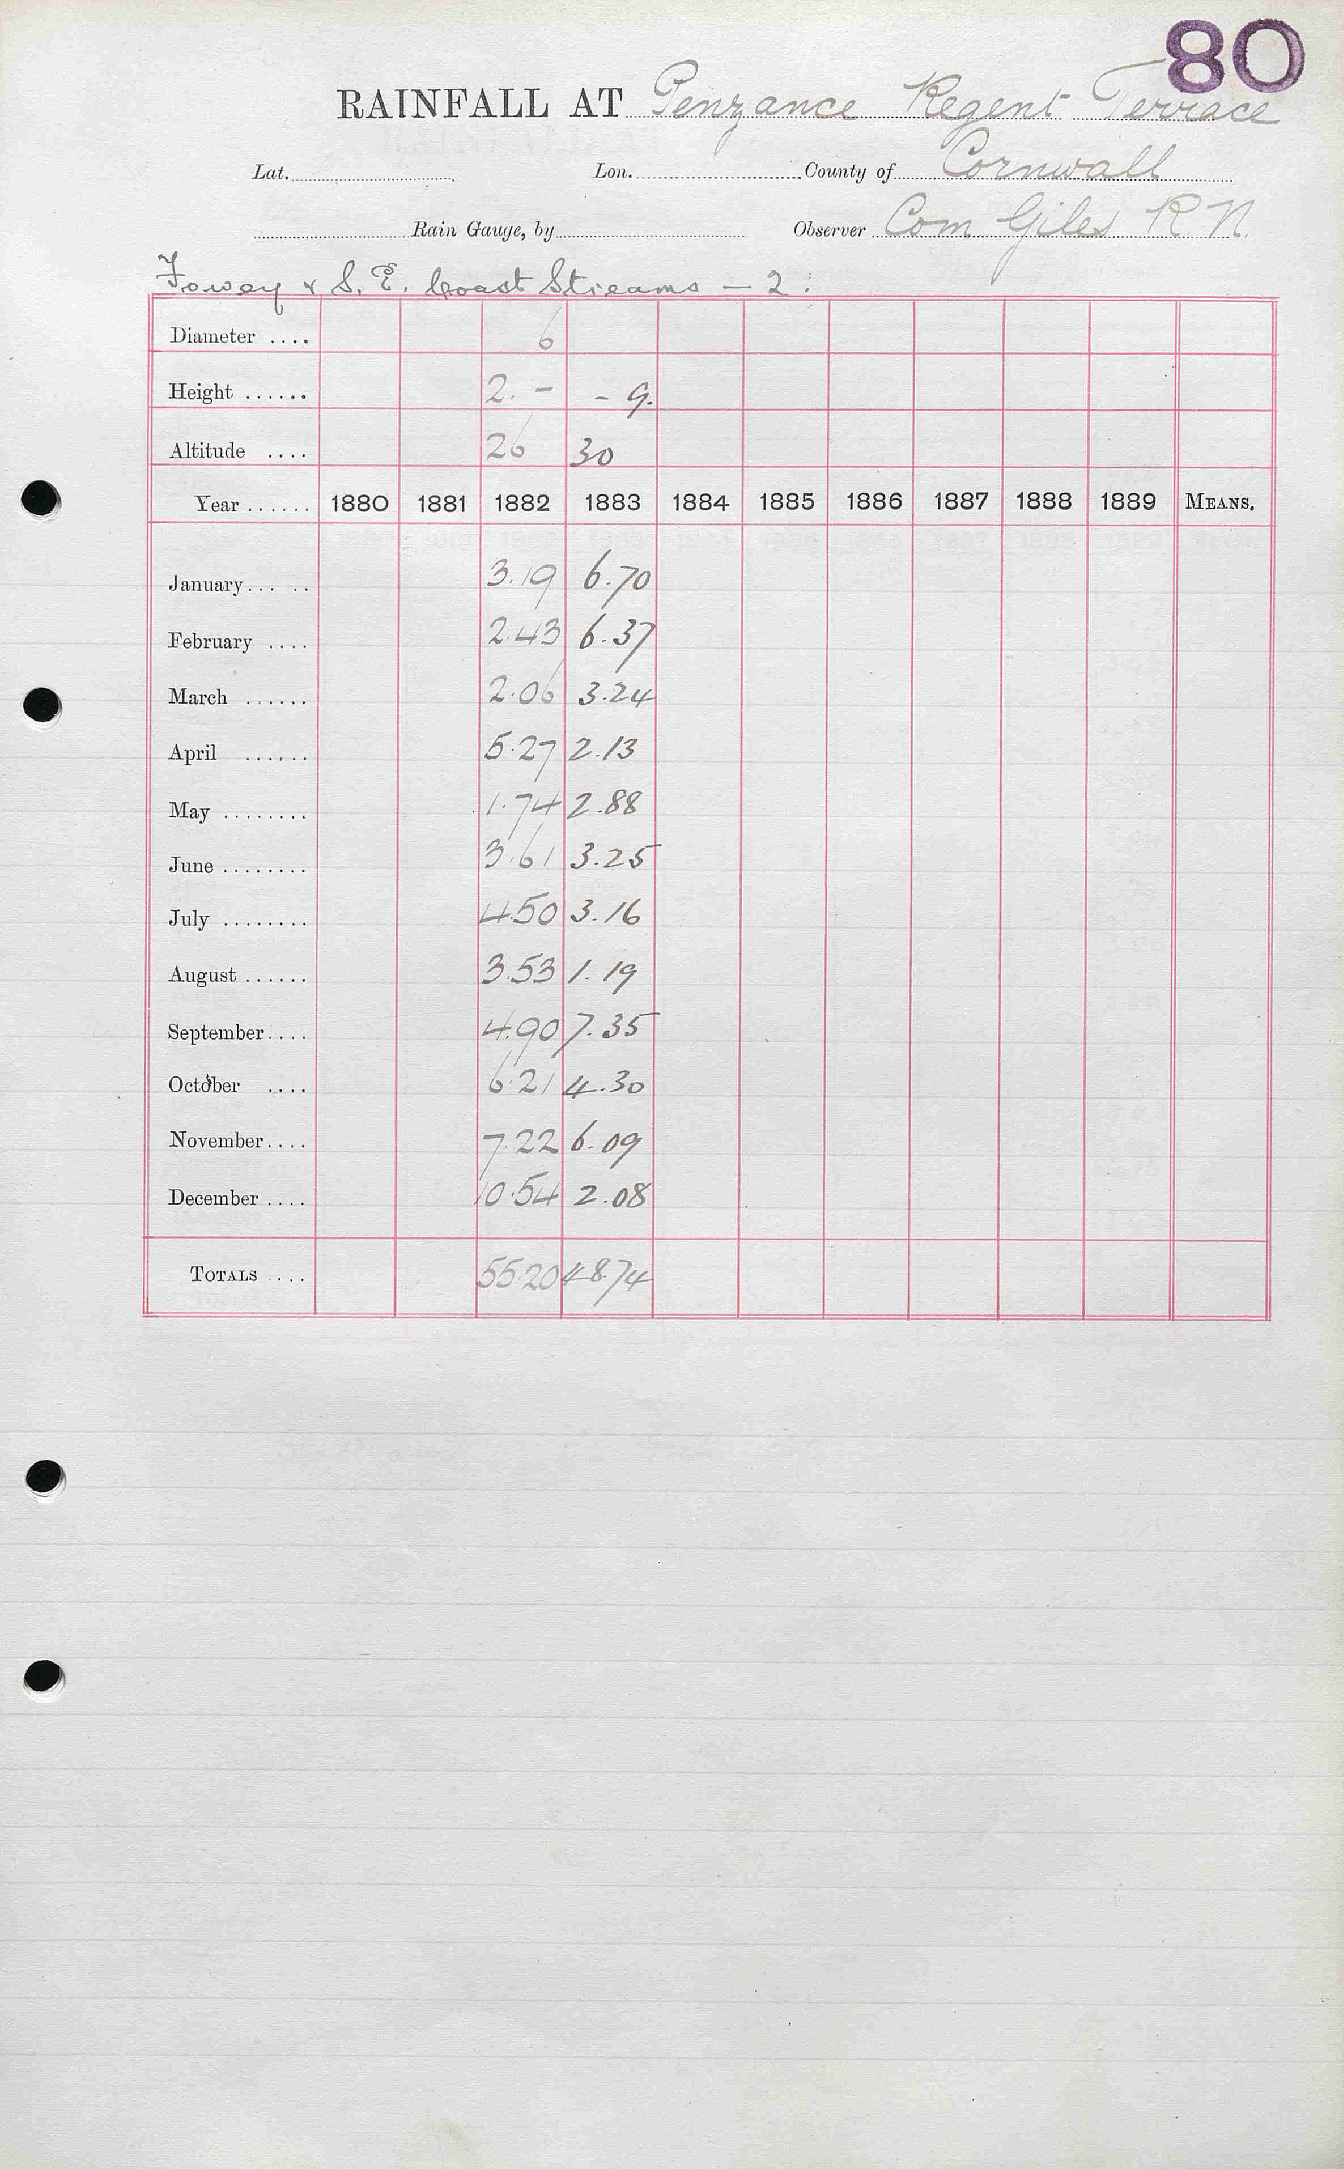 80
RAINFALL AT Penzance Regent Terrace
Lat. Lon. County of Cornwall
Rain Gauge, by Observer Com Giles R N.
Fowey & S. E. Coast Streams — 2.
Diameter .... 6
Height ...... 2. - - 9.
Altitude .... 26 30
Year ...... 1880 1881 1882 1883 1884 1885 1886 1887 1888 1889 MEANS.
January... .. 3.19 6.70
February .... 2.43 6.37
March ...... 2.06 3.24
April ...... 5.27 2.13
May ........ 1.74 2.88
June ........ 3.61 3.25
July ........ 4.50 3.16
August ...... 3.53 1.19
September.... 4.90 7.35
October .... 6.21 4.30
November.... 7.22 6.09
December .... 10.54 2.08
TOTALS .... 55.20 48.74